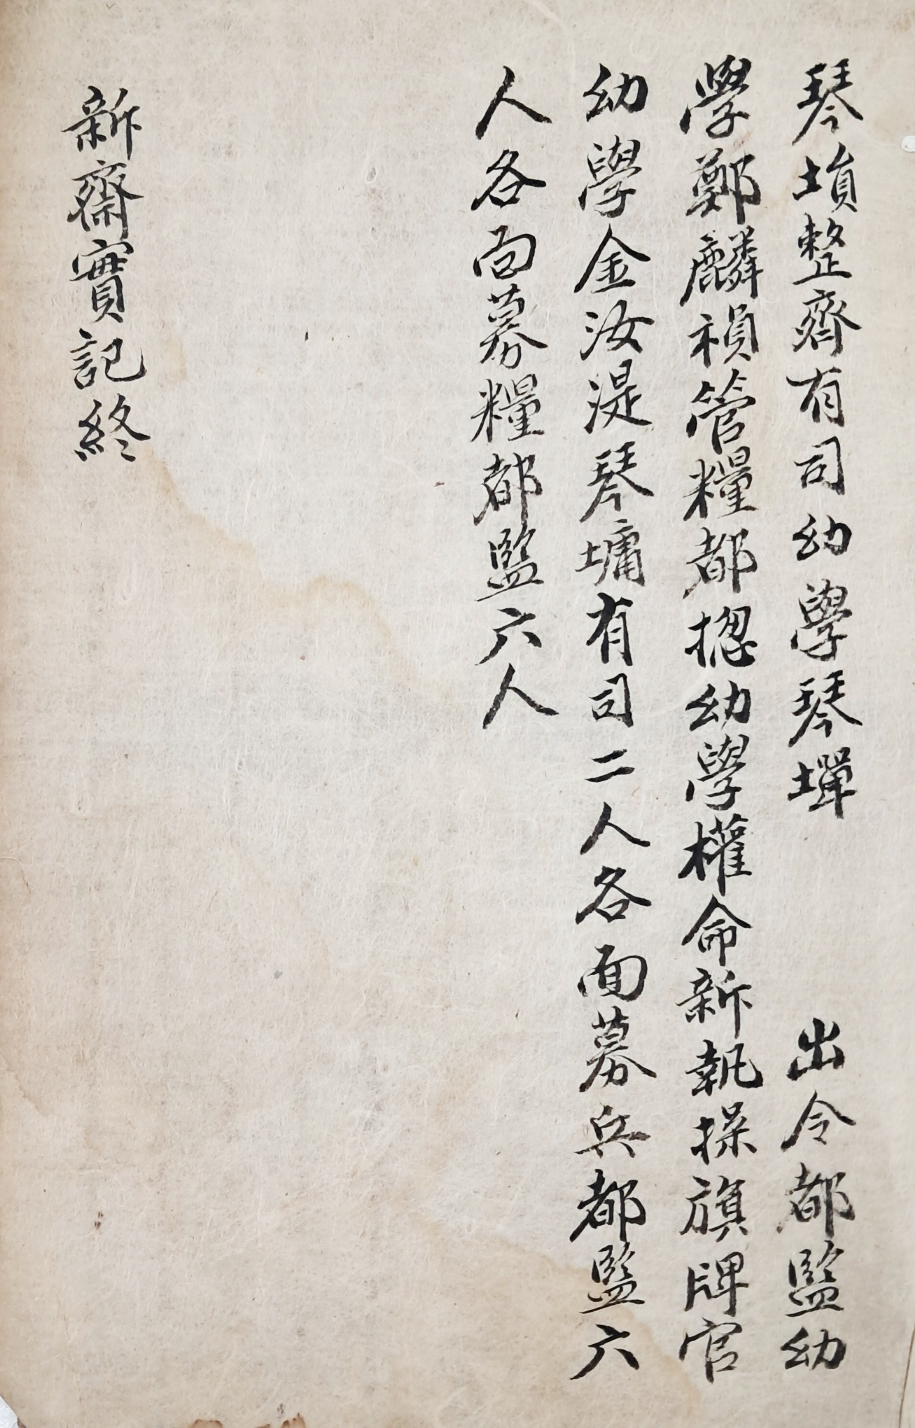 琴塤整齊有司幼學琴墠 出令都監幼
學鄭麟禎管糧都揔幼學權命新執操旗牌官
幼學金汝湜琴墉有司二人各面募兵都監六
人各面募糧都監六人
新齋實記終